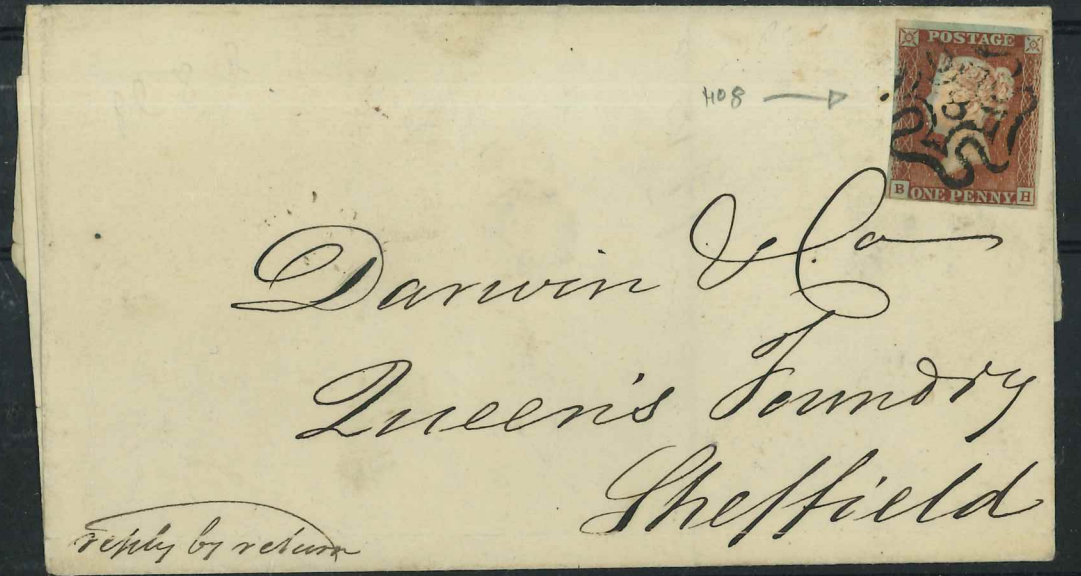 POSTAGE
8
B ONE PENNY H
H08
Darwin & Co
Queen's Foundry
Sheffield
reply by return